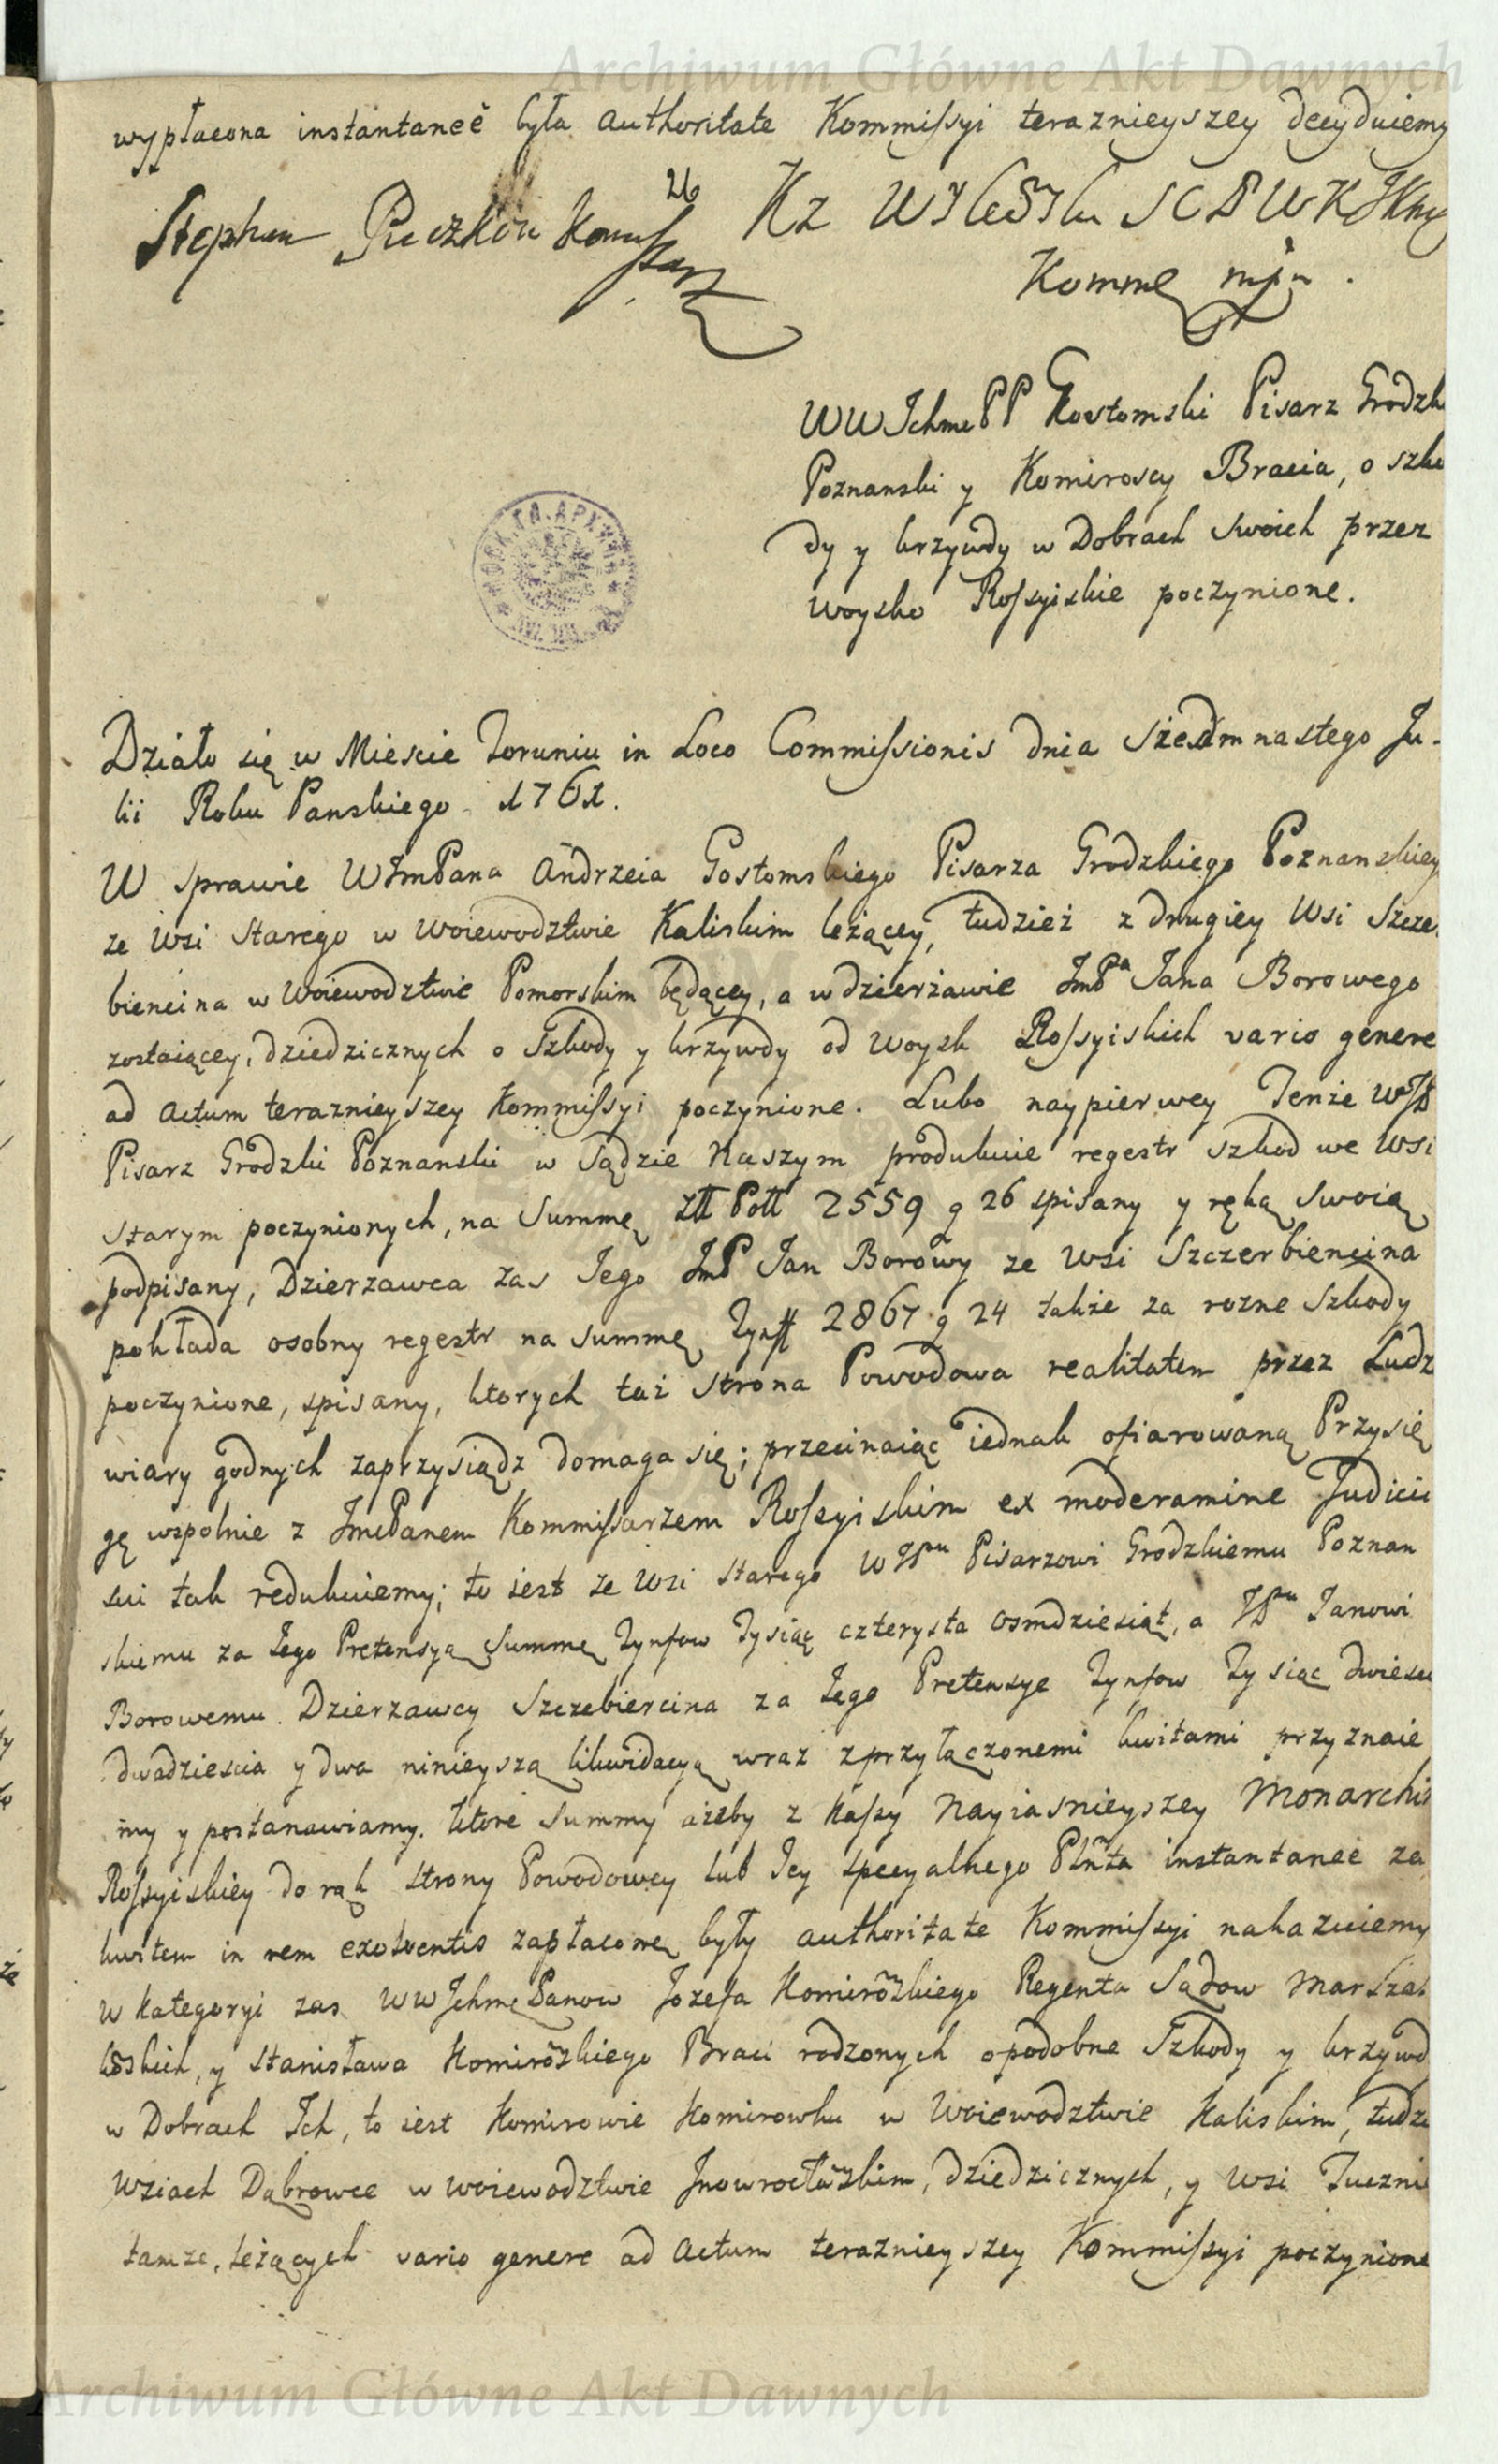 Archiwum Główne Akt Dawnych
wypłacona instantaneè była authoritate Kommissyi teraznieyszey decyduiemy
Stephan
Komme mpr.
WWJchmc PP Gostomski Pisarz Grodzk
Poznanski y Komiroscy Bracia, o szko
dy y krzywdy w Dobrach swoich przez
woysko Rossyiskie poczynione.
Działo się w Miescie Toruniu in Loco Commissionis dnia Siedmnastego Ju-
lii Roku Panskiego 1761.
W sprawie WJmPana Andrzeia Gostomskiego Pisarza Grodzkiego Poznanskiey
ze Wsi Starego w Woiewodztwie Kaliskim leżącey, tudzież z drugiey Wsi Szcze-
biencina w Woiewodztwie Pomorskim będącey, a w dzierżawie JmPa Jana Borowego
zostaiącey, dziedzicznych o Szkody y krzywdy od Woysk Rossyiskich vario genere
ad actum teraznieyszey Kommissyi poczynione. Lubo naypierwey Tenże WJP
Pisarz Grodzki Poznanski w Sądzie Naszym produkuie regestr szkod we Wsi
Starym poczynionych, na Summę Złł Poll 2559 g 26 spisany y ręką Swoią
podpisany, Dzierzawca zas Jego JmP Jan Borowy ze Wsi Szczerbiencina
pokłada osobny regestr na summę Tynff 2867 g 24 także za rozne Szkody
poczynione, spisany, ktorych taż Strona Powodowa realitatem przez Ludz
wiary godnych zaprzysiądz domaga się; przecinaiąc iednak ofiarowaną Przysię
gę wspolnie z JmcPanem Kommissarzem Rossyiskim ex moderamine Judicii
sui tak redukuiemy; to iest ze Wsi Starego WJPnu Pisarzowi Grodzkiemu Poznan
skiemu za Jego Pretensyą Summę Tynfow Tysiąc czterysta osmdziesiąt, a JPnu Janowi
Borowemu Dzierzawcy Szczebiercina za Jego Pretensye Tynfow Tysiąc dwiescie
dwadziescia y dwa ninieyszą likwidacyą wraz z przyłączonemi kwitami przyznaie
my y postanawiamy. Ktore Summy ażeby z Kassy Nayiasnieyszey Monarchi
Rossyiskiey do rąk Strony Powodowey lub Jey specyalnego Plnta instantaneè za
kwitem in rem exolventis zapłacone były authoritate Kommissyi nakazuiemy
W kategoryi zas WWJchmc Panow Jozefa Komirōskiego Regenta Sądow Marszał
kōskich, y Stanisława Komirōskiego Braci rodzonych o podobne Szkody y krzywd
w Dobrach Jch, to iest Komirowie Komirowku w Woiewodztwie Kaliskim, tudz
Wsiach Dąbrowce w woiewodztwie Jnowrocławskim, dziedzicznych, y Wsi Tuczni
tamze, leżących vario genere ad actum teraznieyszey Kommissyi poczynione
Archiwum Główne Akt Dawnych